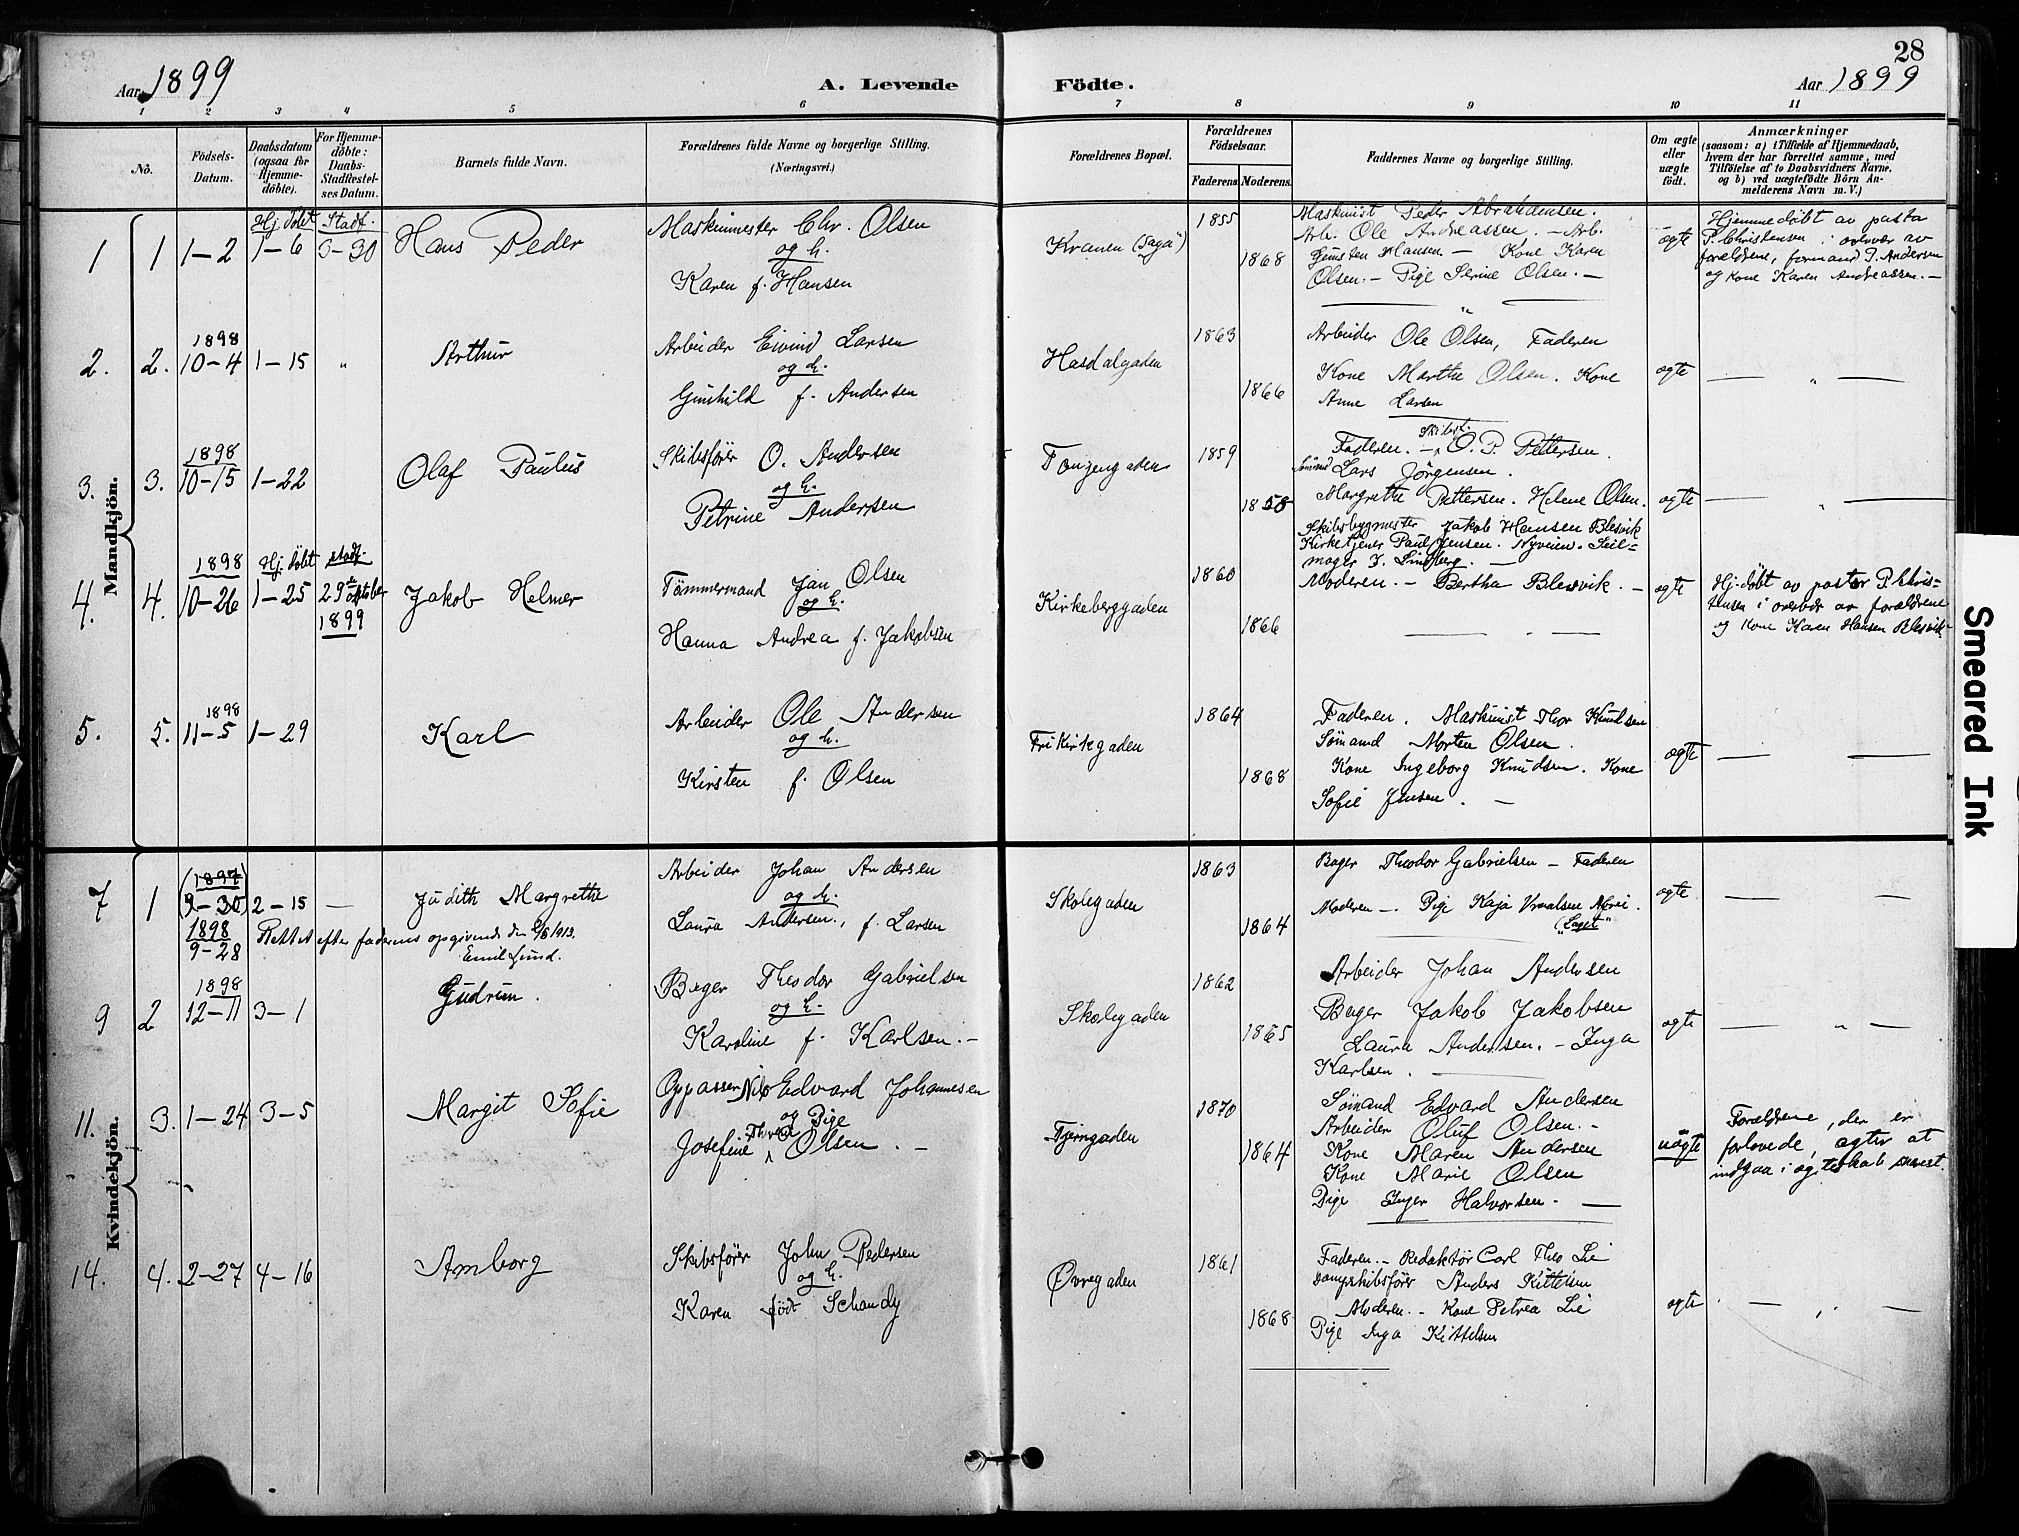 28
Aar 1899
A. Levende Födte.
Aar 1899
1 2 3 4 5 6 7 8 9 10 11
No.
Födsels-Datum.
Daabsdatum (ogsaa for Hjemme-döbte).
For Hjemme-döbte: Daabs-Stadfæstel-ses Datum.
Barnets fulde Navn.
Forældrenes fulde Navne og borgerlige Stilling. (Næringsvei.)
Forældrenes Bopæl.
Forældrenes Födselsaar.
Faderens. Moderens.
Faddernes Navne og borgerlige Stilling.
Om ægte eller uægte født.
Anmærkninger
(saasom: a) i Tilfælde af Hjemmedaab,
hvem der har forrettet samme, med
Tilföielse af to Daabsvidners Navne,
og b) ved uægtefödte Börn An-
melderens Navn m. V.)
Mandkjön.
1 1 1-2
Hj. döbt 1-6
Stadf. 3-30
Hans Peder
Maskinmester Chr. Olsen
og h.
Karen f. Hansen
Kranen ("Saga")
1855
1868
Maskinist Peder Abrahamsen.
Arb. Ole Andreassen. - Arb.
Hansen - Kone Karen
Olsen. - Pige Serine Olsen. -
ægte
Hjemmedöbt av pastor
P. Christensen i overvær av
forældrene, formand P. Andersen
og kone Karen Andreassen. -
2. 2. 1898 10-4 1-15 "
Arthur
Arbeider Eivind Larsen
og h.
Gunhild f. Andersen
Hasdalgaden
1863
1866
Arbeider Ole Olsen, Faderen
Kone Marthe Olsen. Kone
Anne Larsen
ægte
— " —
3. 3. 1898 10-15 1-22
Olaf Paulus
Skibsfører O. Andersen
og h.
Petrine Andersen
Tangengaden
1859
1858
Faderen. - Skibsf. O. P. Pettersen.
Sømand Lars Jörgensen.
Margrethe Pettersen. Helene Olsen.
ægte
— " —
4. 4. 1898 10-26
Hj. döbt 1-25
stadf. 29de oktober 1899
Jakob Helmer
Tømmermand Jan Olsen
og h.
Hanna Andrea f. Jakobsen
Kirkeberggaden
1860
1866
Skibsbygmester Jakob Hansen Blesvik
Kirketjener Paul Jensen. Nyveien. Seil-
mager J. Lindberg. -
Moderen. - Bertha Blesvik. -
— " —
ægte
Hj. döbt av pastor P. Chris-
tensen i overvær av forældrene
og kone Karen Hansen Blesvik.
5. 5. 1898 11-5 1-29
Karl
Arbeider Ole Andersen
og h.
Kirsten f. Olsen
Frikirkegaden
1864
1868
Faderen. Maskinist Thor Knudsen
Sømand Morten Olsen.
Kone Ingeborg Knudsen. Kone
Sofie Jensen. -
ægte
— —
Kvindekjön.
7 1 (1897 9-30) 2-15 —
1898 9-28
Judith Margrethe
Rettet efter faderens opgivende den 2/8 1913.
Emil Lund.
Arbeider Johan Andersen
og h.
Laura Andersen, f. Larsen
Skolegaden
1863
1864
Bager Theodor Gabrielsen - Faderen
Moderen -. Pige Kaja
ægte
— —
9 2 1898 12-11 3-1
Gudrun.
Bager Theodor Gabrielsen
og h.
Karoline f. Karlsen. -
Skolegaden
1862
1865
Arbeider Johan Andersen
Bager Jakob Jakobsen
Laura Andersen. - Inga
Karlsen.
ægte
— " —
11. 3. 1-24 3-5
Margit Sofie
Oppasser Nils Edvard Johannesen
og Pige
Josefine Olsen. -
Tjerngaden
1870
1864
Sømand Edvard Andersen
Arbeider Oluf Olsen. -
Kone Maren Andersen
Kone Marie Olsen
Pige Inger Halvorsen. -
uægte
Forældrene, der er
forlovede, agter at
indgaa i ægteskab snarest.
14. 4. 2-27 4-16
Amborg
Skibsfører John Pedersen
og h.
Karen født Schandy
Øvregaden
1861
1868
Faderen. - Redaktør Carl Theo Lie
Dampskibsfører Anders Kittelsen
Moderen. - Kone Petrea Lie
Pige Inga Kittelsen
ægte
— " —
Smeared Ink